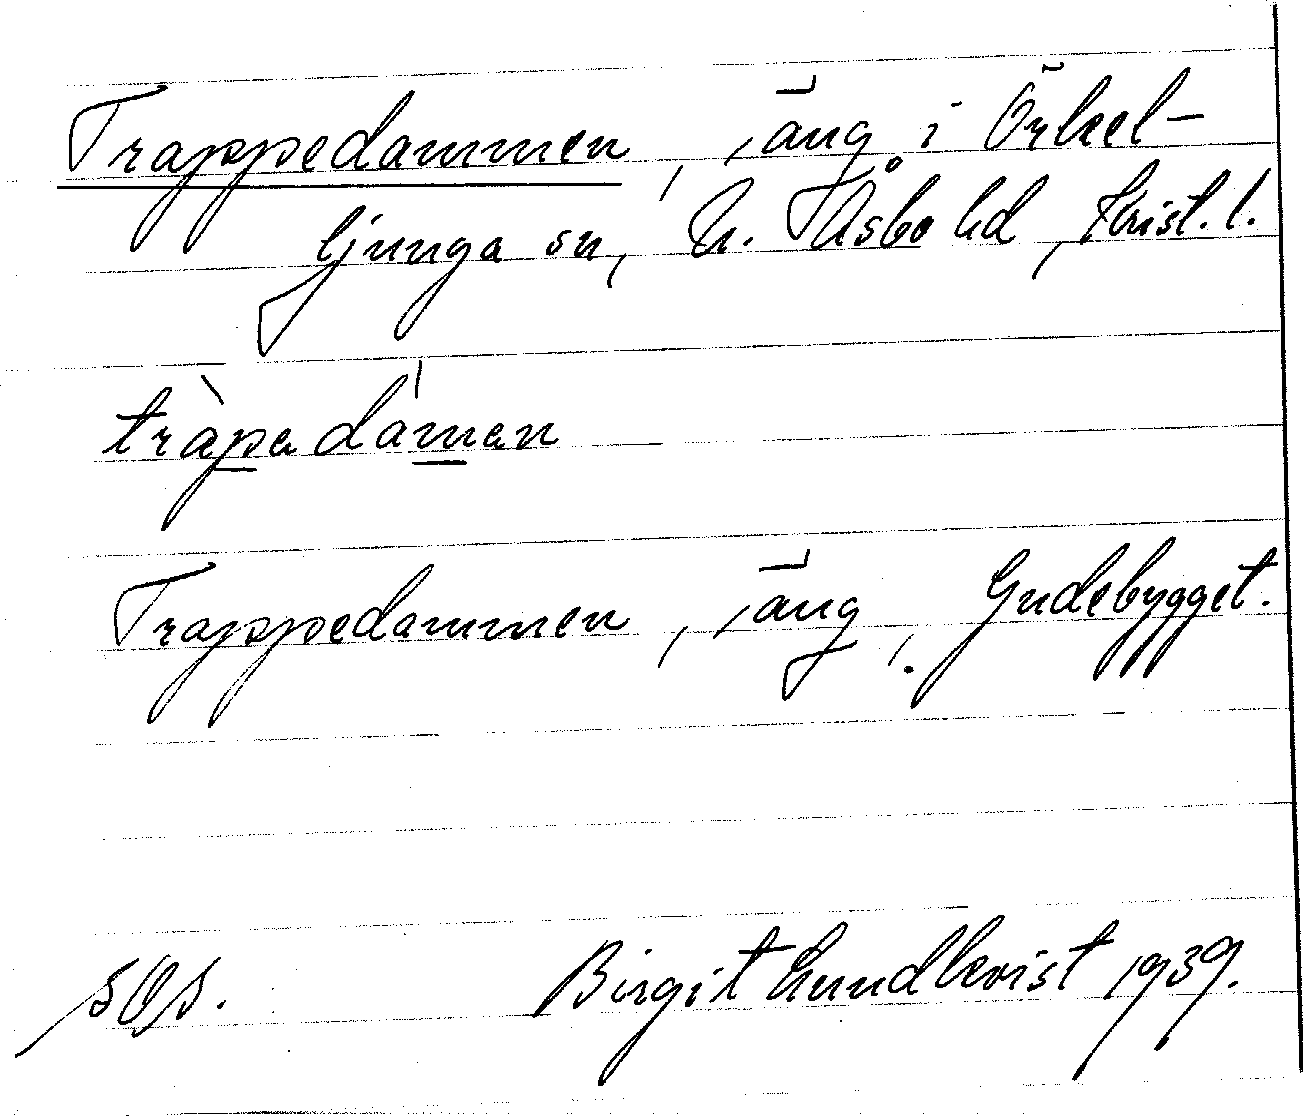 Trappedammen, äng i Örkel-
ljunga sn, N. Åsbo hd, Krist. l.
tràpadámen
Trappedammen, äng, Gudebygget.
Birgit Lundkvist 1939.